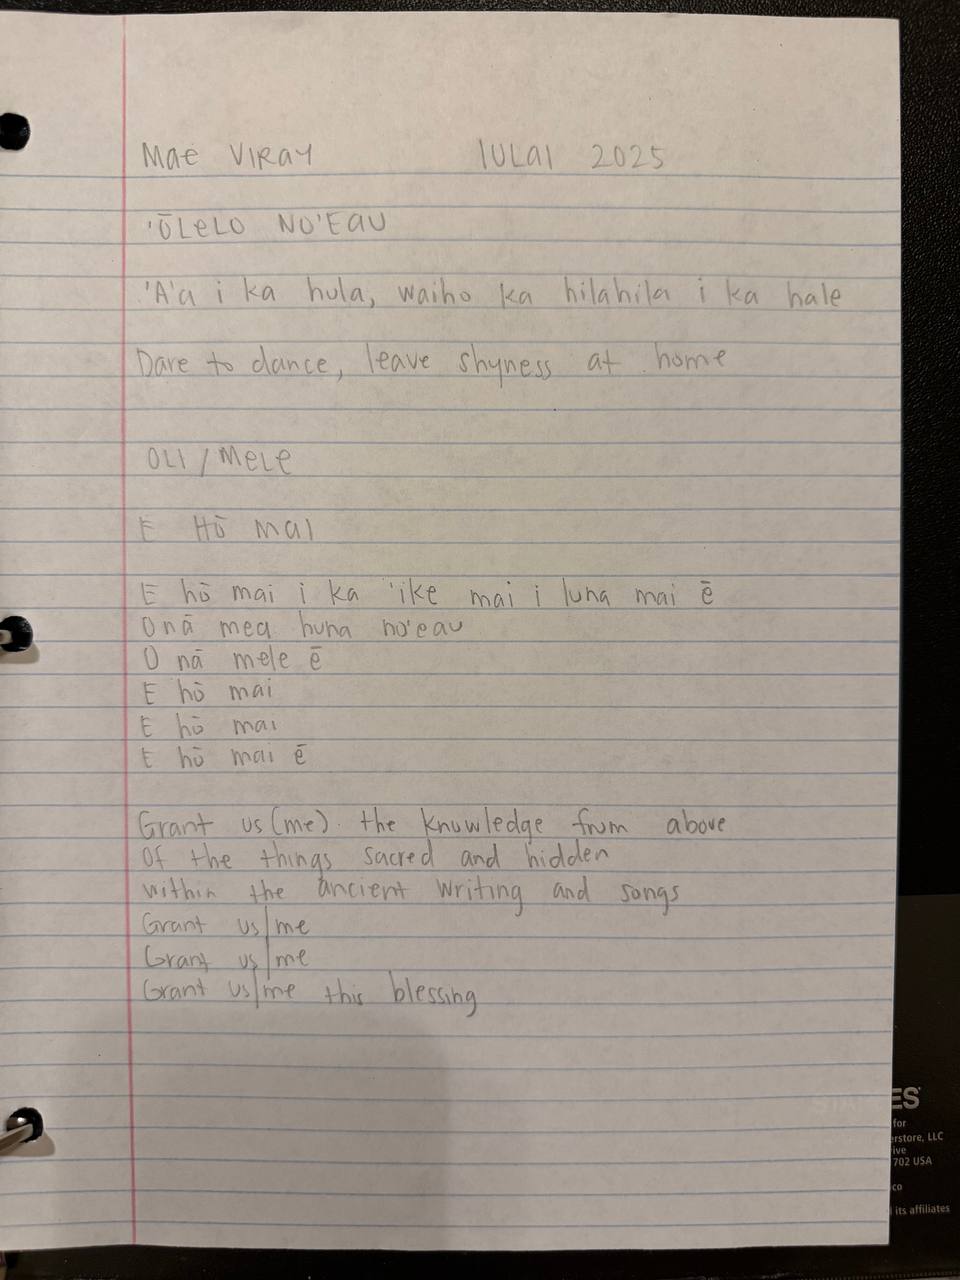 Mae Viray Iulai 2025
'Ōlelo No'eau
'A'a i ka hula, waiho ka hilahila i ka hale
Dare to dance, leave shyness at home
Oli / Mele
E Hō mai
E hō mai i ka 'ike mai i luna mai ē
O nā mea huna no'eau
O nā mele ē
E hō mai
E hō mai
E hō mai ē
Grant us (me) the knowledge from above
Of the things sacred and hidden
within the ancient writing and songs
Grant us/me
Grant us/me
Grant us/me this blessing
ES
for
erstore, LLC
ive
702 USA
co
its affiliates